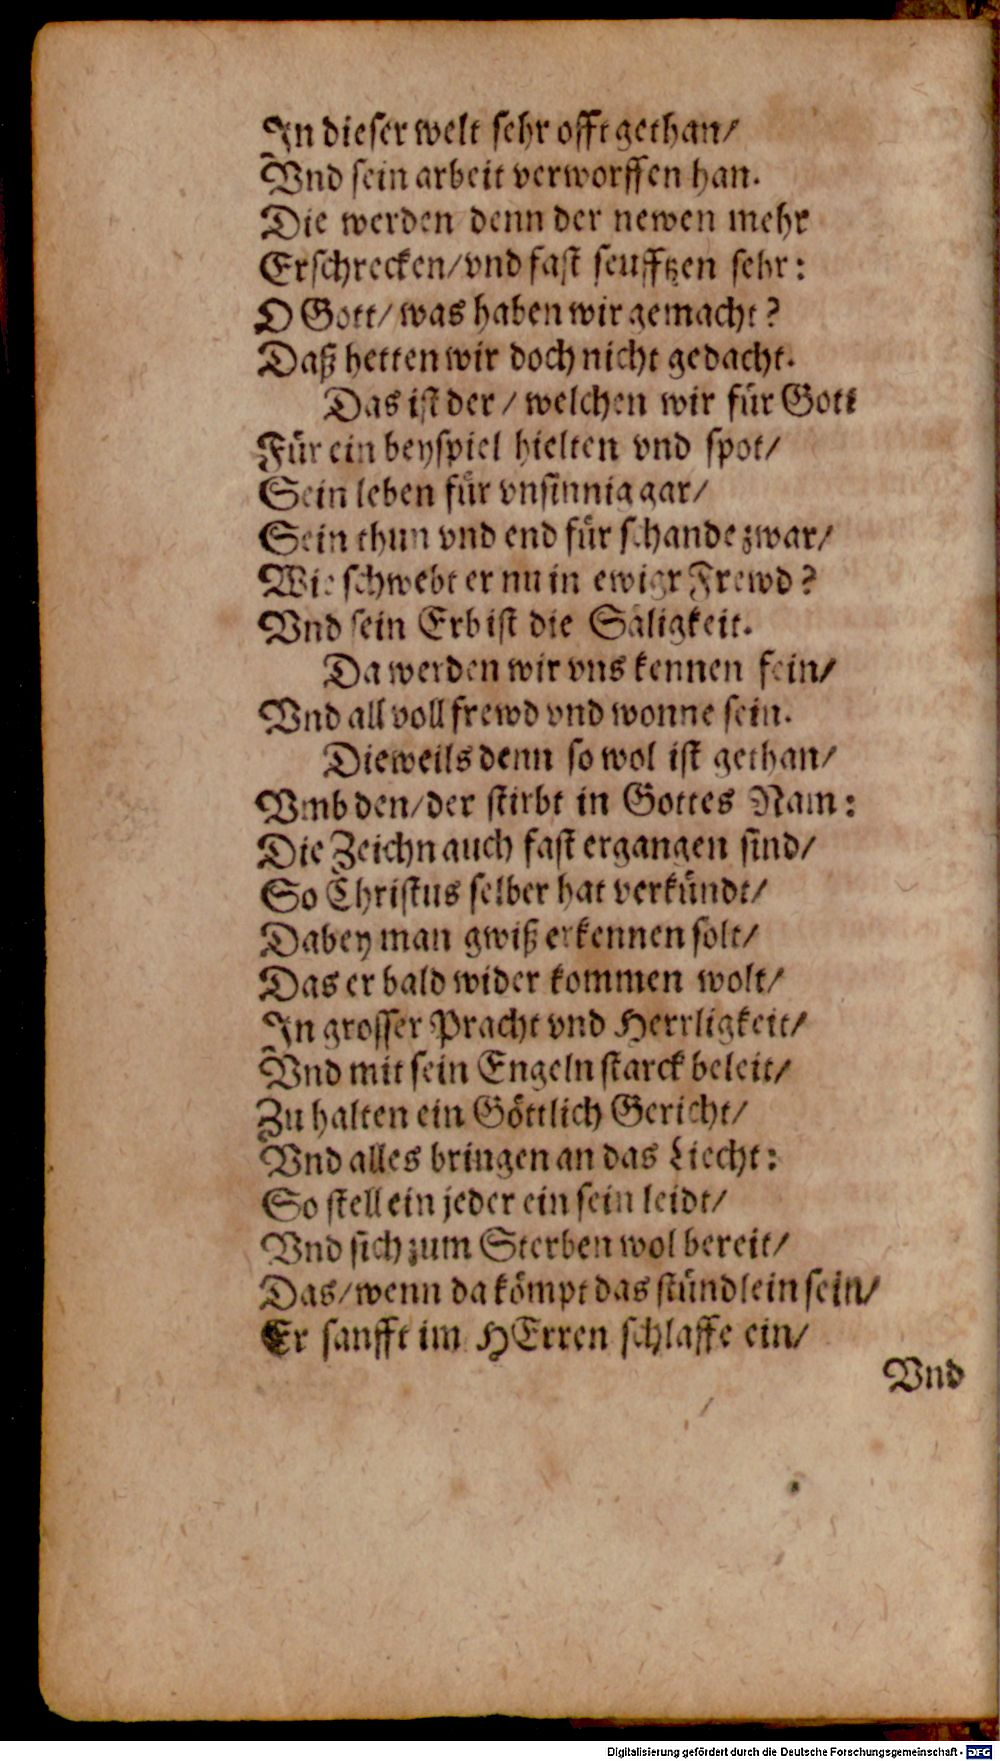 In dieser welt sehr offt gethan/
Vnd sein arbeit verworffen han.
Die werden denn der newen mehr
Erschrecken/vnd fast seufftzen sehr:
O Gott/was haben wir gemacht?
Daß hetten wir doch nicht gedacht.
Das ist der / welchen wir für Gott
Für ein beyspiel hielten vnd spot/
Sein leben für vnsinnig gar/
Sein thun vnd end für schande zwar/
Wie schwebt er nu in ewigr Frewd?
Vnd sein Erb ist die Säligkeit.
Da werden wir vns kennen fein/
Vnd all voll frewd vnd wonne sein.
Dieweils denn so wol ist gethan/
Vmb den/der stirbt in Gottes Nam:
Die Zeichn auch fast ergangen sind/
So Christus selber hat verkündt/
Dabey man gwiß erkennen solt/
Das er bald wider kommen wolt/
In grosser Pracht vnd Herrligkeit/
Vnd mit sein Engeln starck beleit/
Zu halten ein Göttlich Gericht/
Vnd alles bringen an das Liecht:
So stell ein jeder ein sein leidt/
Vnd sich zum Sterben wol bereit/
Das/wenn da kömpt das stündlein sein/
Er sanfft im HErren schlaffe ein/
Vnd
Digitalisierung gefördert durch die Deutsche Forschungsgemeinschaft - DFG